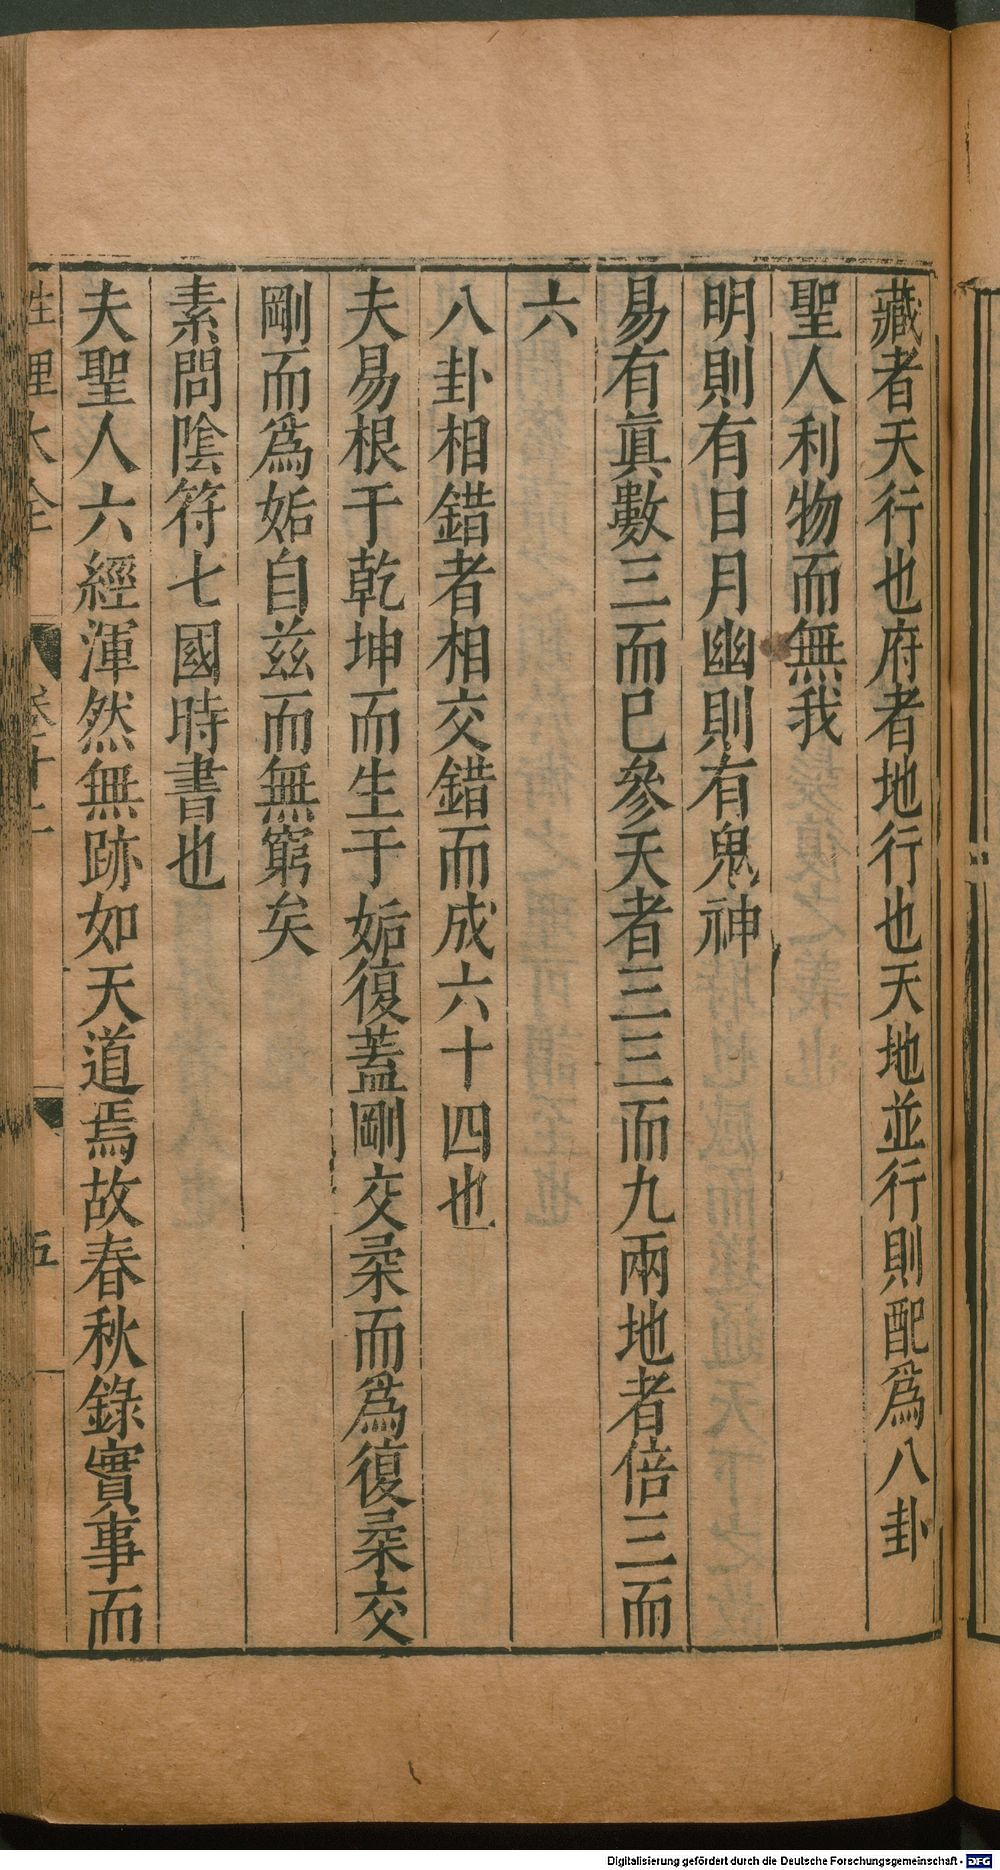 藏者天行也府者地行也天地並行則配爲八卦
聖人利物而無我
明則有日月幽則有鬼神
易有眞數三而已參天者三三而九兩地者倍三而
六
八卦相錯者相交錯而成六十四也
夫易根于乾坤而生于姤復蓋剛交柔而爲復柔交
剛而爲姤自茲而無窮矣
素問隂符七國時書也
夫聖人六經渾然無跡如天道焉故春秋錄實事而
性理大全
五
Digitalisierung gefördert durch die Deutsche Forschungsgemeinschaft - DFG